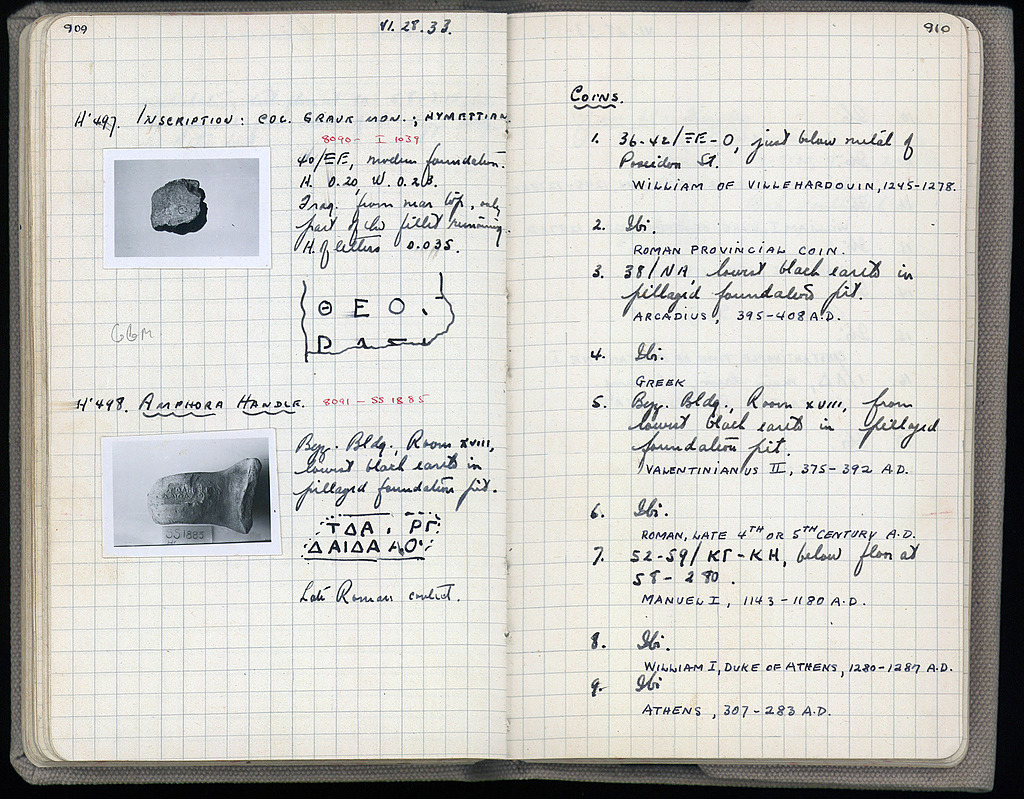 909
VI. 28. 33.
H'497. INSCRIPTION: COL. GRAVE MON.; HYMETTIAN
8090 - I 1039
40/ΞΕ, modern foundation.
H. 0.20, W. 0.23.
Frag. from near top, only
part of the fillet remaining.
H. of letters 0.035.
Θ Ε Ο .
GGM
H'498. AMPHORA HANDLE. 8091 - SS 1885
Byz. Bldg., Room XVIII,
lowest black earth in
pillaged foundation pit.
SS 1885
ΤΔΑ . ΡΓ
ΔΑΙΔΑ
Late Roman context.
910
COINS.
1. 36-42/ΞΕ-Ο, just below metal of
Poseidon St.
WILLIAM OF VILLEHARDOUIN, 1245-1278.
2. Ibi.
ROMAN PROVINCIAL COIN.
3. 38/ΝΑ, lowest black earth in
pillaged foundation pit.
ARCADIUS, 395-408 A.D.
4. Ibi.
GREEK
5. Byz. Bldg., Room XVIII, from
lowest black earth in pillaged
foundation pit.
VALENTINIANUS II, 375-392 A.D.
6. Ibi.
ROMAN, LATE 4TH OR 5TH CENTURY A.D.
7. 52-59/ΚΓ-ΚΗ, below floor at
58 - 280.
MANUEL I, 1143-1180 A.D.
8. Ibi.
WILLIAM I, DUKE OF ATHENS, 1280-1287 A.D.
9. Ibi
ATHENS, 307-283 A.D.